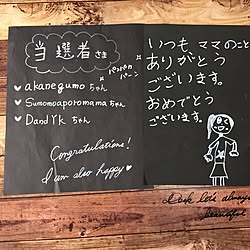 当選者さま
パンパカ
パーン
akanegumo ちゃん
Sumomoaporomama ちゃん
Dandyk ちゃん
Congratulations!
I am also happy
いつも、ママのこと
ありがとう
ございます。
おめでとう
ございます。
always
beautiful